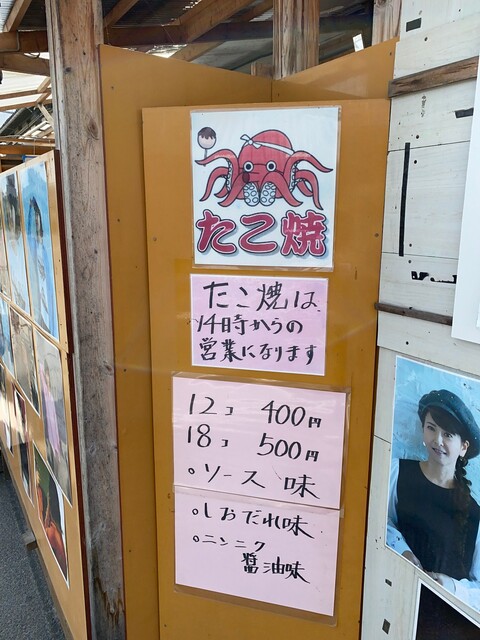 たこ焼
たこ焼は、
14時からの
営業になります
12コ 400円
18コ 500円
○ソース味
○しおだれ味
○ニンニク
醤油味